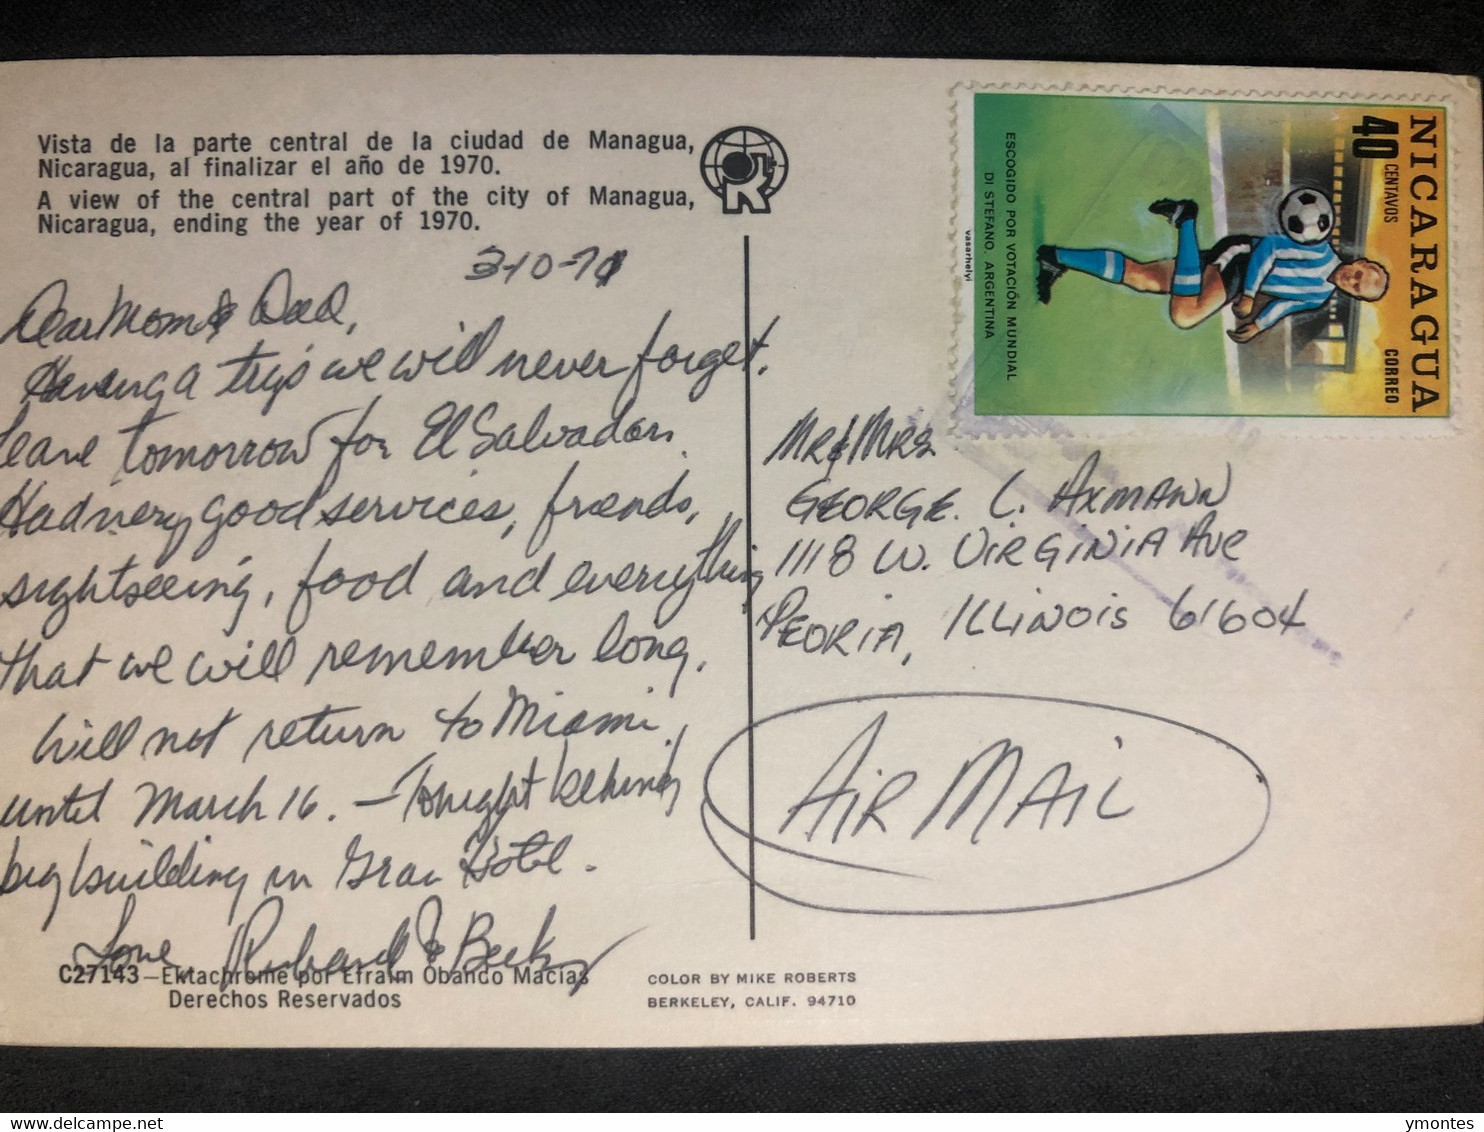 Vista de la parte central de la ciudad de Managua,
Nicaragua, al finalizar el año de 1970.
A view of the central part of the city of Managua,
Nicaragua, ending the year of 1970.
3-10-71
Dear Mom & Dad,
Having a trip we will never forget.
Leave tomorrow for El Salvador.
Had very good services, friends,
sightseeing, food and everything
that we will remember long.
Will not return to Miami
until March 16. — Tonight behind
big building in Gran Hotel.
Love Richard & Becky
C27143—Ektachrome por Efraim Obando Macias
Derechos Reservados
COLOR BY MIKE ROBERTS
BERKELEY, CALIF. 94710
NICARAGUA
40 CENTAVOS
CORREO
ESCOGIDO POR VOTACIÓN MUNDIAL
DI STEFANO, ARGENTINA
vasarhelyi
MR & MRS
GEORGE L. AXMANN
1118 W. VIRGINIA AVE
PEORIA, ILLINOIS 61604
AIR MAIL
delcampe.net
ymontes